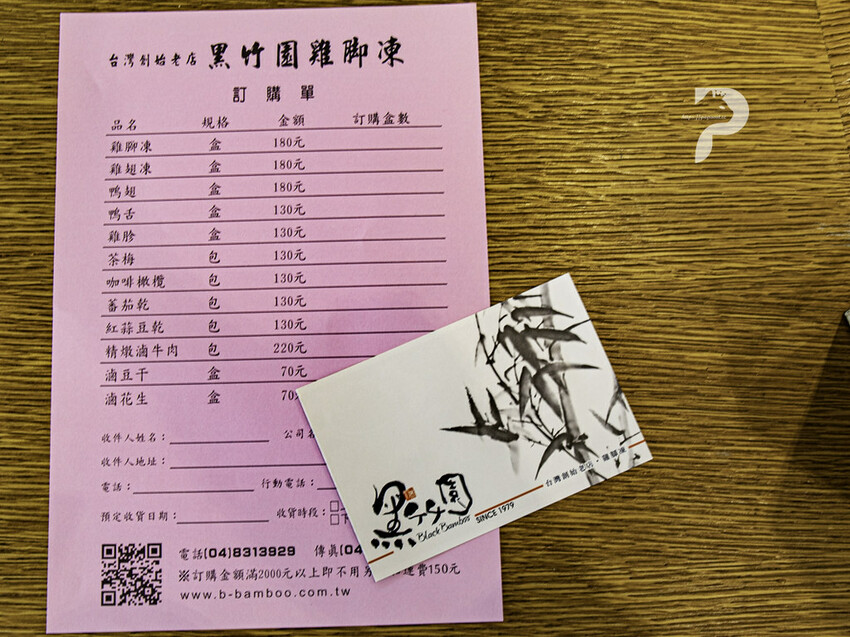 台灣創始老店 黑竹園雞腳凍
訂購單
品名 規格 金額 訂購盒數
雞腳凍 盒 180元
雞翅凍 盒 180元
鴨翅 盒 180元
鴨舌 盒 130元
雞胗 盒 130元
茶梅 包 130元
咖啡橄欖 包 130元
蕃茄乾 包 130元
紅蒜豆乾 包 130元
精燉滷牛肉 包 220元
滷豆干 盒 70元
滷花生 盒 70
收件人姓名： 公司
收件人地址：
電話： 行動電話：
預定收貨日期： 收貨時段：
電話(04)8313929 傳真(04
※訂購金額滿2000元以上即不用 運費150元
www.b-bamboo.com.tw
黑竹園
Black Bamboo SINCE 1979
台灣創始老店・雞腳凍